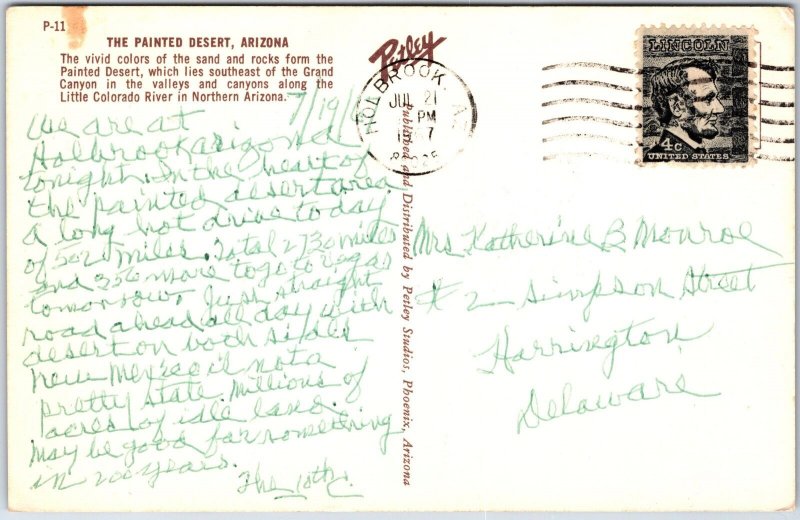 P-11
THE PAINTED DESERT, ARIZONA
The vivid colors of the sand and rocks form the
Painted Desert, which lies southeast of the Grand
Canyon in the valleys and canyons along the
Little Colorado River in Northern Arizona.
7/19/
We are at
Holbrook arizona
tonight. In the heart of
the painted desert area
a long hot drive today
of 502 miles. Total 2730 miles
and 350 more to go to vegas
tomorrow. Just straight
road ahead all day with
desert on both sides
new Mexico is not a
pretty state. Millions of
acres of idle land.
may be good for something
in 200 years.
The 10th.
Petley
Published and Distributed by Petley Studios, Phoenix, Arizona
HOLBROOK, A
JUL 21
PM
LINCOLN
4c
UNITED STATES
Mrs. Katherine B Monroe
# 2 Simpson Street
Harrington
Delaware